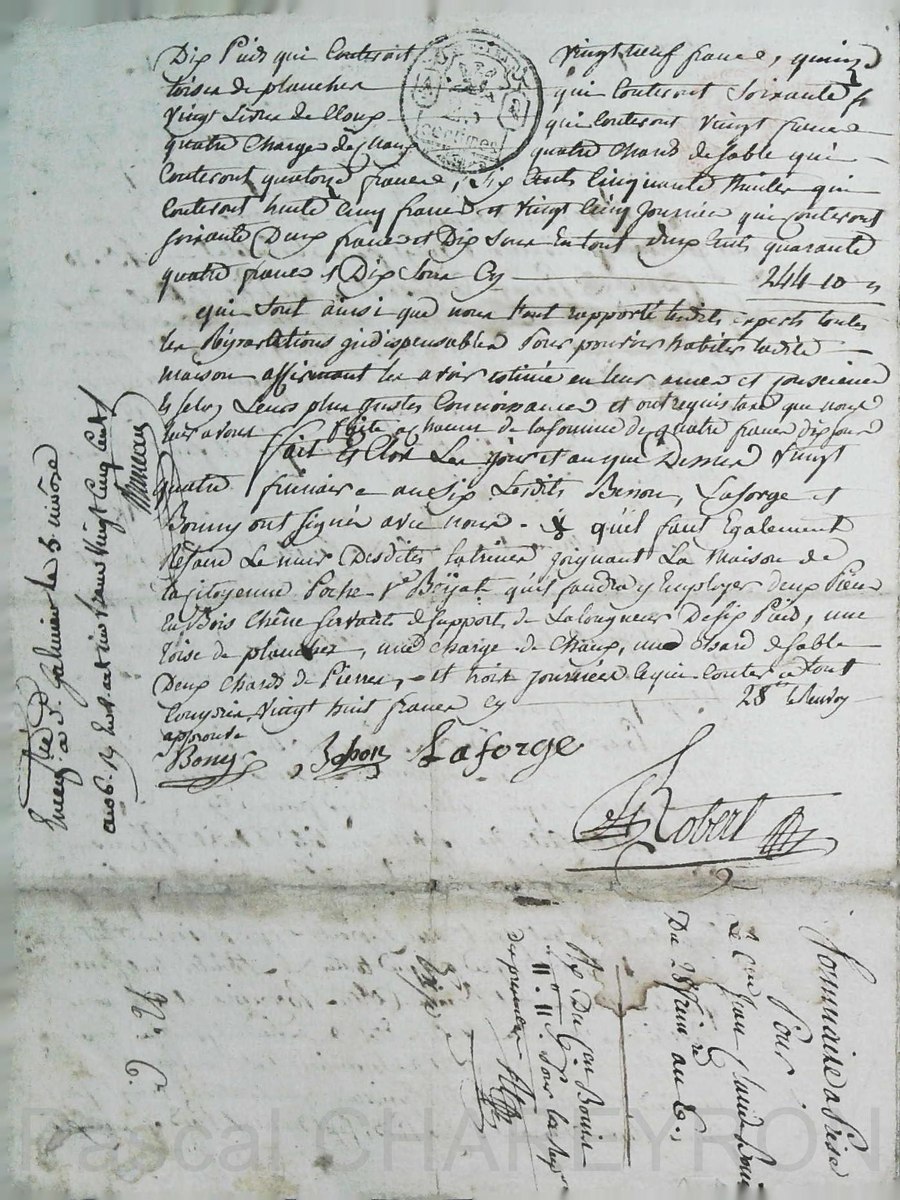 Dix Pieds qui Couteront vingt neuf francs, quinze
toises de planches qui Couteront Soixante f
vingt Livres de Cloux qui Couteront vingt francs
quatre Charges de Chaux quatre Chards de sable qui
Couteront quatorze francs, Six Cents Cinquante thuiles qui
Couteront trente Cinq francs et vingt Cinq journées qui Couteront
soixante Deux francs et Dix sous En tout deux Cents quarante
quatre francs et Dix Sous Cy 244-10 s
qui Sont ainsi que nous l'ont rapporté lesdits experts toutes
les Réparations indispensables Pour pouvoir habiter ladite
maison affirmant les avoir estimée en leur ames et Conscience
et selon Leurs plus justes Connoissances et ont requis taxe que nous
leur avons faite a chacun de la somme de quatre francs dix sous
fait et Clos Les jour et an que Dessus vingt
quatre frimaire an six Lesdits Laforge et
Bonny ont signé avec nous. qu'il faut Egalement
Refaire Le mur Desdites latrines joignant La Maison de
la Citoyenne Poche Ve qu'il faudra y Employer deux Pieces
En Bois Chêne servants de supports de La longueur De six Pieds, une
toise de planches, une charge de Chaux, un Chard de sable
Deux Chards de Pierres, et trois journées Ce qui Coutera en tout
Compris vingt huit francs Cy 28 Le Renvoy
approuvé
Bonny Laforge
Robert
Enregistré à St Galmier le 5 nivose
an 6. vingt Cinq Cent
Sommaire a Prise
Pour
Le Cen Jean Claude
Du 28 frim.re
an 6.
du premier
No. 6.
Pascal CHAREYRON